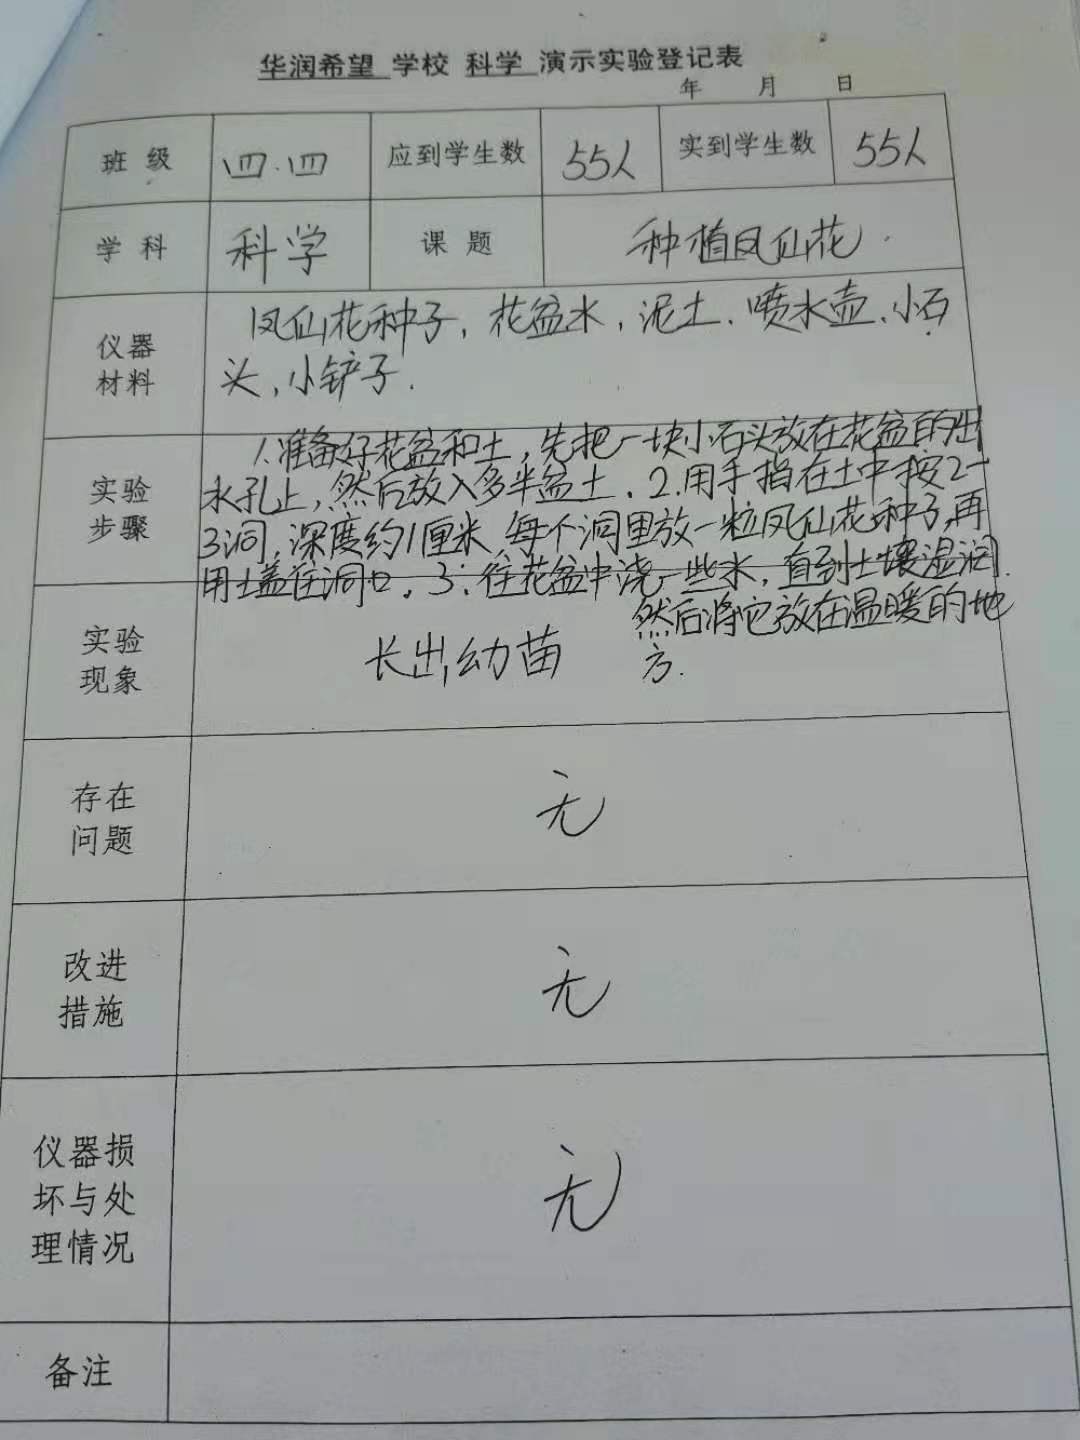 华润希望 学校 科学 演示实验登记表
年 月 日
班级 四.四 应到学生数 55人 实到学生数 55人
学科 科学 课题 种植凤仙花.
仪器
材料
凤仙花种子，花盆水，泥土、喷水壶、小石
头，小铲子.
实验
步骤
1.准备好花盆和土，先把一块小石头放在花盆的出
水孔上，然后放入多半盆土.2.用手指在土中按2-
3洞，深度约1厘米，每个洞里放一粒凤仙花种子，再
用土盖住洞口.3.往花盆中浇一些水，直到土壤湿润.
然后将它放在温暖的地
方.
实验
现象
长出幼苗
存在
问题
无
改进
措施
无
仪器损
坏与处
理情况
无
备注